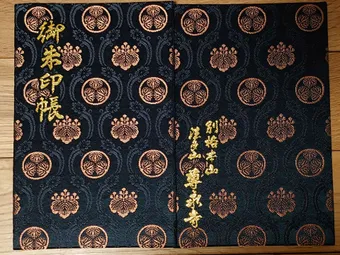 御朱印帳
別格本山
法多山 尊永寺